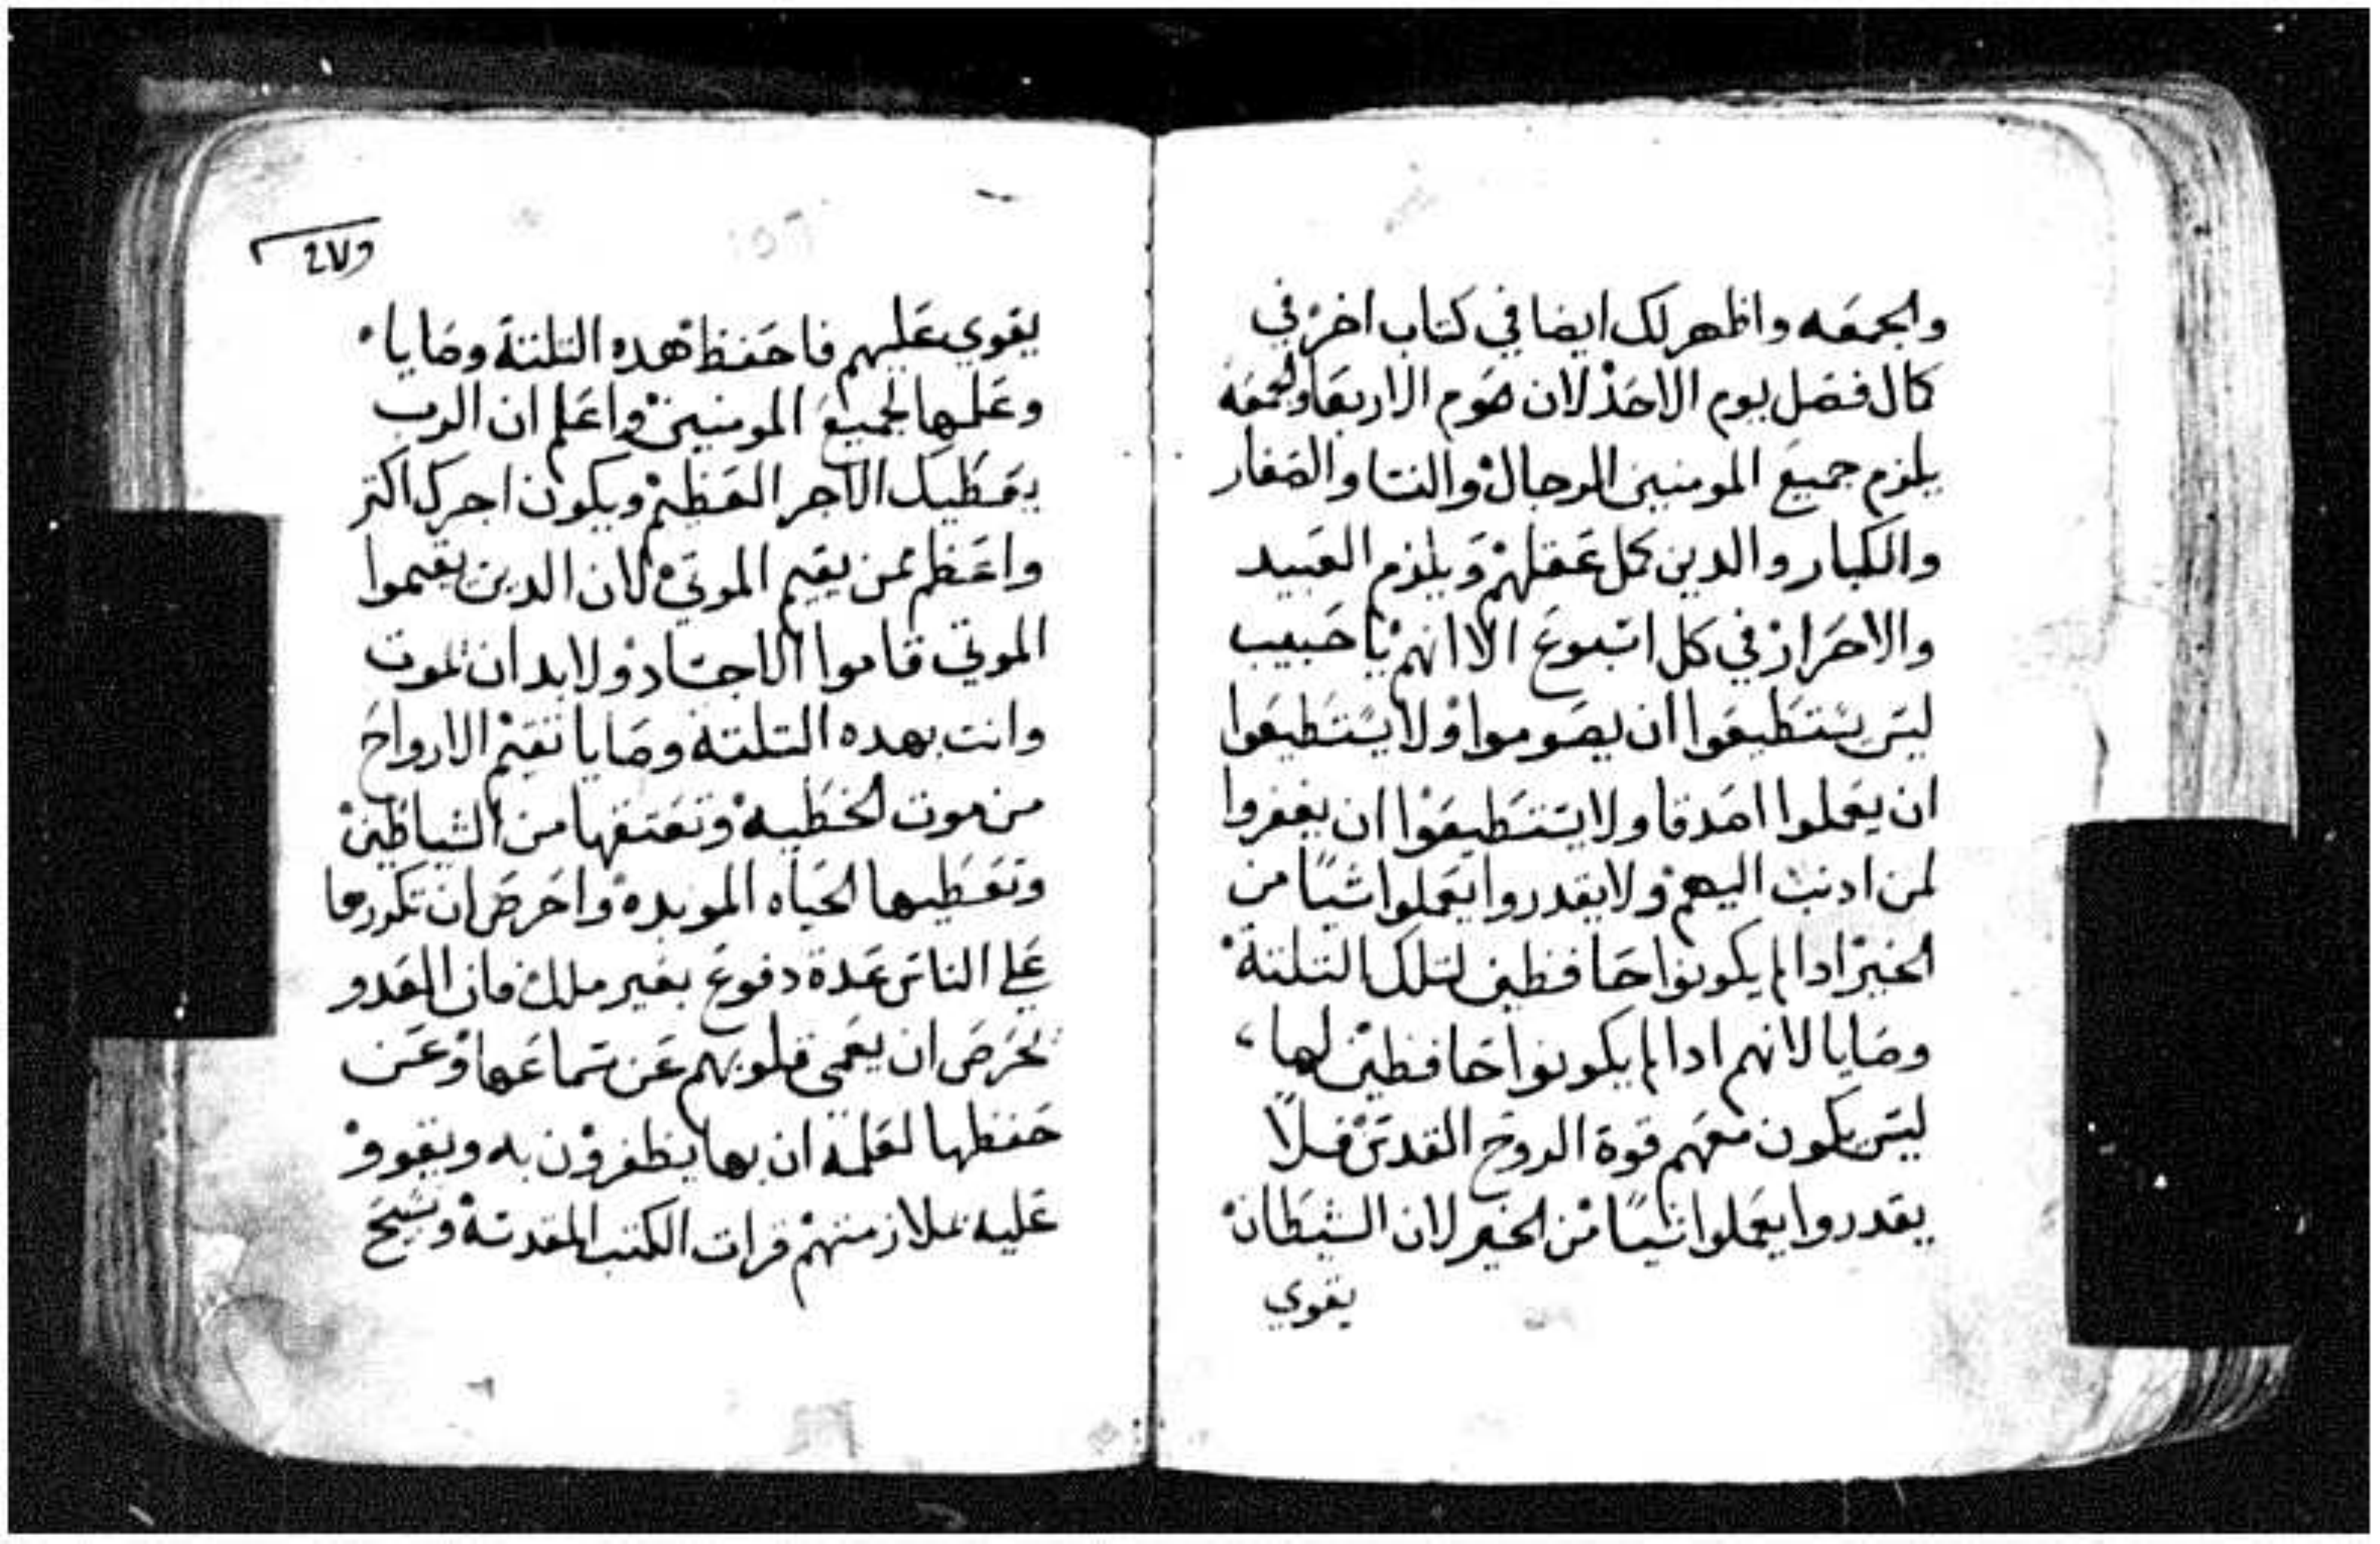 والجمعه واظهر لك ايضا في كتاب اخر في
كال فصل يوم الاحد لان صوم الاربعا والجمعه
يلزم جميع المومنين الرجال والنسا والصغار
والكبار والدين كمل عقلهم ويلزم العبيد
والاحرار في كل اسبوع الا انهم يا حبيب
ليس يستطيعوا ان يصوموا ولا يستطيعوا
ان يعملوا اصدقا ولا يستطيعوا ان يغفروا
لمن ادنب اليهم ولا يقدروا يعملوا شيا من
الخير ادا لم يكونوا حافظين لتلك التلتة
وصايا لانهم ادا لم يكونوا حافظين لها
ليس يكون معهم قوة الروح القدس فلا
يقدروا يعملوا شيا من الخير لان الشيطان
يقوي
٢٧٥
يقوي عليهم فاحفظ هده التلتة وصايا
وعلمها لجميع المومنين واعلم ان الرب
يعطيك الاجر العظيم ويكون اجرك اكتر
واعظم ممن يقيم الموتي لان الدين يقيموا
الموتي قاموا الاجساد ولابد ان تموت
وانت بهده التلتة وصايا تقيم الارواح
من موت الخطيه وتعتقها من الشياطين
وتعطيها الحياه الموبده واحرص ان تكررها
علي الناس عدة دفوع بغير ملل فان العدو
يحرص ان يعمي قلوبهم عن سماعها وعن
حفظها لعلمه ان بها يظفرون به ويقووا
عليه بملازمتهم قرات الكتب المقدسة